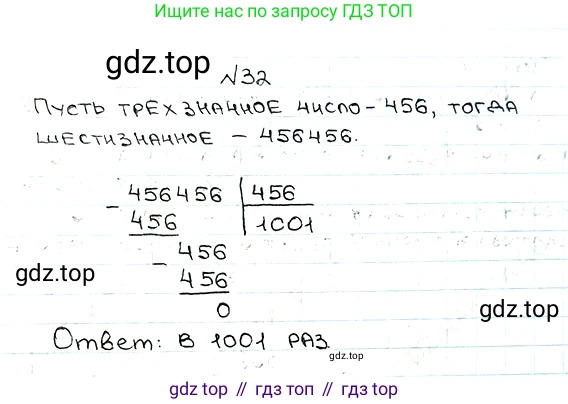 Ищите нас по запросу ГДЗ ТОП
gdz.top
№32
Пусть трехзначное число - 456, тогда
шестизначное - 456456.
- 456456 | 456
456 1001
- 456
456
0
gdz.top
gdz.top
Ответ: в 1001 раз.
gdz.top
gdz.top // гдз.топ // гдз.top